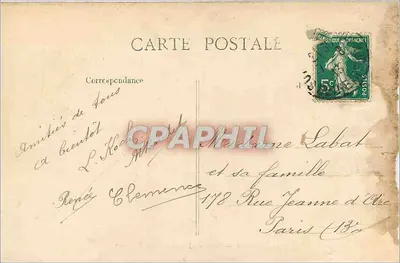 CARTE POSTALE
REPUBLIQUE FRANCAISE
5c
POSTES
Correspondance
Amitiés de tous
a bientôt
L.
René Clemence
CPAPHIL
Madame Labat
et sa famille
178 Rue Jeanne d'Arc
Paris (13e